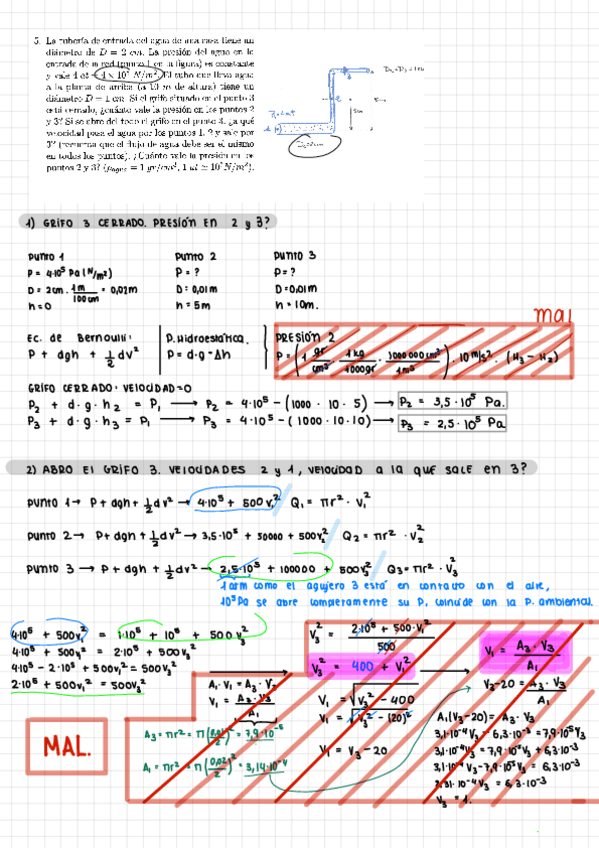 5. La tubería de entrada del agua de una casa tiene un
diámetro de D = 2 cm. La presión del agua en la
entrada de la red (punto 1 en la figura) es constante
y vale 4 at = 4 × 10⁵ N/m². El tubo que lleva agua
a la planta de arriba (a 10 m de altura) tiene un
diámetro D = 1 cm. Si el grifo situado en el punto 3
está cerrado, ¿cuánto vale la presión en los puntos 2
y 3? Si se abre del todo el grifo en el punto 3, ¿a qué
velocidad pasa el agua por los puntos 1, 2 y sale por
3? (recuerda que el flujo de agua debe ser el mismo
en todos los puntos). ¿Cuánto vale la presión en los
puntos 2 y 3?
5m
1) GRIFO 3 CERRADO. PRESIÓN EN 2 y 3?
PUNTO 1
P = 4·10⁵ Pa (N/m²)
D = 2cm · 1m/100cm = 0,02m
h = 0
PUNTO 2
P = ?
D = 0,01m
h = 5m
PUNTO 3
P = ?
D = 0,01m
h = 10m.
mal
EC. de Bernoulli:
P + dgh + 1/2 dv²
P. Hidrostática.
P = d·g·Δh
PRESIÓN 2
P = (1 gr/cm³ · 1kg/1000gr · 1000000cm³/1m³) · 10m/s² · (H₃ - H₂)
GRIFO CERRADO: VELOCIDAD = 0
P₂ + d·g·h₂ = P₁ → P₂ = 4·10⁵ - (1000·10·5) → P₂ = 3,5·10⁵ Pa.
P₃ + d·g·h₃ = P₁ → P₃ = 4·10⁵ - (1000·10·10) → P₃ = 2,5·10⁵ Pa
2) ABRO El GRIFO 3. VELOCIDADES 2 y 1, VELOCIDAD a la QUE SALE EN 3?
PUNTO 1 → P + dgh + 1/2 dv² → 4·10⁵ + 500v₁² / Q₁ = πr² · v₁²
PUNTO 2 → P + dgh + 1/2 dv² → 3,5·10⁵ + 50000 + 500v₂² / Q₂ = πr² · v₂²
PUNTO 3 → P + dgh + 1/2 dv² → 2,5·10⁵ + 100000 + 500v₃² / Q₃ = πr² · v₃²
1 atm como el agujero 3 está en contacto con el aire,
10⁵Pa se abre completamente su P, coincide con la P. ambiental.
4·10⁵ + 500v₁² = 1·10⁵ + 10⁵ + 500v₃²
4·10⁵ + 500v₁² = 2·10⁵ + 500v₃²
4·10⁵ - 2·10⁵ + 500v₁² = 500v₃²
2·10⁵ + 500v₁² = 500v₃²
V₃² = 2·10⁵ + 500·v₁² / 500
V₃² = 400 + V₁²
V₁ = A₃ · V₃ / A₁
A₁·V₁ = A₃·V₃
V₁ = A₃·V₃ / A₁
A₃ = πr² = π(0,01/2)² = 7,9·10⁻⁵
A₁ = πr² = π(0,02/2)² = 3,14·10⁻⁴
V₁ = √V₃² - 400
V₁ = √V₃² - (20)²
V₁ = V₃ - 20
V₃-20 = A₃·V₃ / A₁
A₁(V₃-20) = A₃·V₃
3,1·10⁻⁴V₃ - 6,3·10⁻³ = 7,9·10⁻⁵V₃
3,1·10⁻⁴V₃ = 7,9·10⁻⁵V₃ + 6,3·10⁻³
3,1·10⁻⁴V₃ - 7,9·10⁻⁵V₃ = 6,3·10⁻³
2,31·10⁻⁴V₃ = 6,3·10⁻³
V₃ = 1.
MAL.